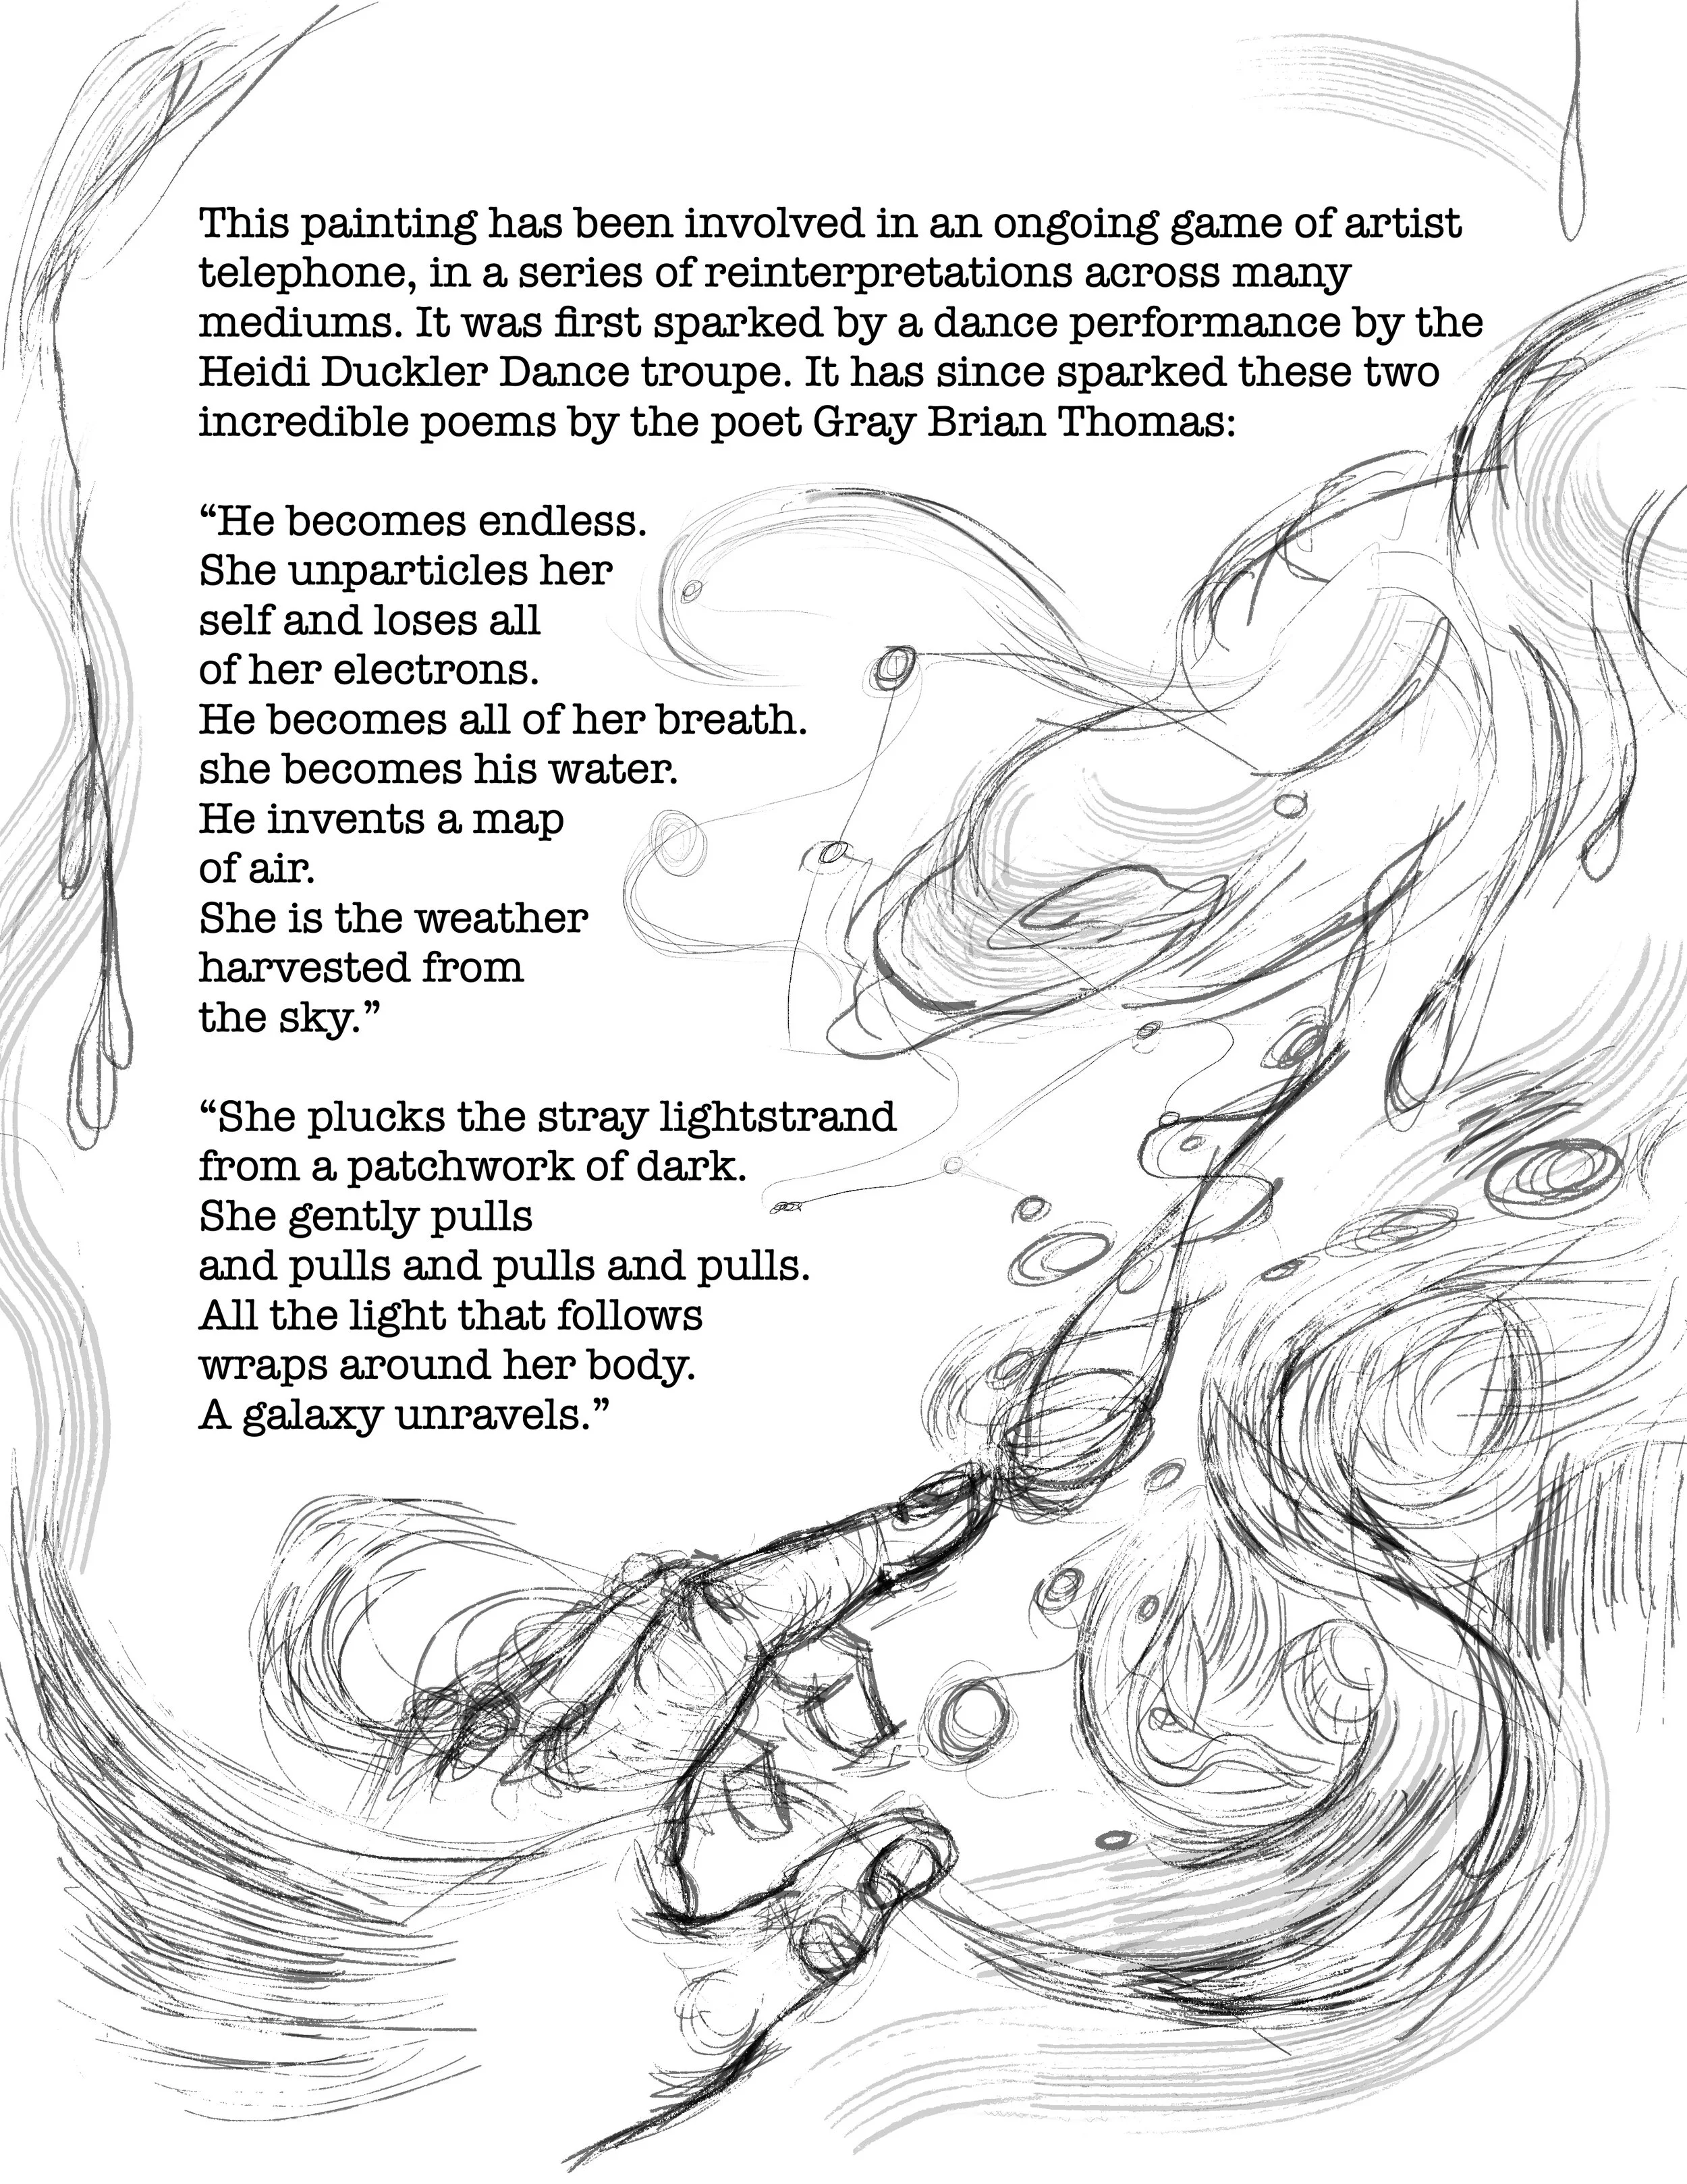 This painting has been involved in an ongoing game of artist
telephone, in a series of reinterpretations across many
mediums. It was first sparked by a dance performance by the
Heidi Duckler Dance troupe. It has since sparked these two
incredible poems by the poet Gray Brian Thomas:
“He becomes endless.
She unparticles her
self and loses all
of her electrons.
He becomes all of her breath.
she becomes his water.
He invents a map
of air.
She is the weather
harvested from
the sky.”
“She plucks the stray lightstrand
from a patchwork of dark.
She gently pulls
and pulls and pulls and pulls.
All the light that follows
wraps around her body.
A galaxy unravels.”